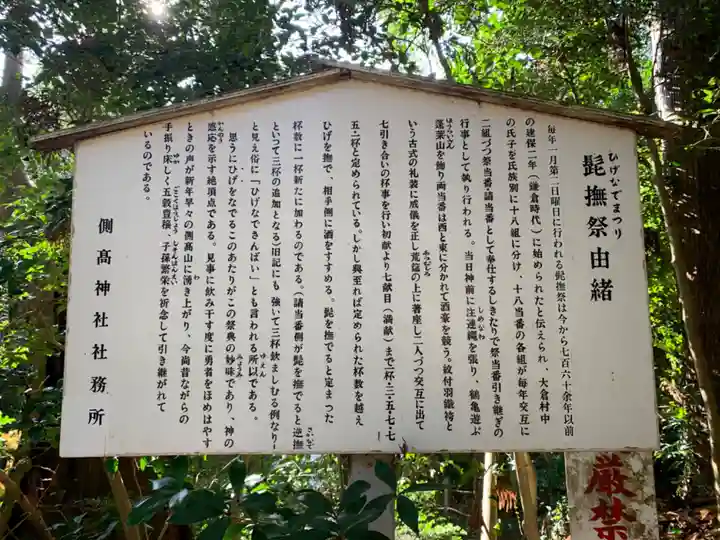 ひげなでまつり
髭撫祭由緒
毎年一月第二日曜日に行われる髭撫祭は今から七百六十余年以前
の建保二年(鎌倉時代)に始められたと伝えられ、大倉村中
の氏子を氏族別に十八組に分け、十八当番の各組が毎年交互に
二組づつ祭当番・請当番として奉仕するしきたりで祭当番引き継ぎの
しめなわ
行事として執り行われる。当日神前に注連縄を張り、鶴亀遊ぶ
ほうらいさん
蓬萊山を飾り両当番は西と東に分かれて酒豪を競う。紋付羽織袴と
いう古式の礼装に威儀を正し荒筵の上に著座し二人づつ交互に出て
七引き合いの杯事を行い初献より七献目(満献)まで一杯・三・五・七・七
五・三杯と定められている。しかし興至れば定められた杯数を越え
ひげを撫で、相手側に酒をすすめる。髭を撫でると定まった
杯数に一杯新たに加わるのである。(請当番側が髭を撫でると逆撫
といって三杯の追加となる)旧記にも 強いて三杯飲ましむる例なり
ゆえん
と見え俗に「ひげなでさんばい」とも言われる所以である。
思うにひげをなでるこのあたりがこの祭典の妙味であり、神の
かんのう
感応を示す絶頂点である。見事に飲み干す度に勇者をほめはやす
ときの声が新年早々の側高山に湧き上がり、今尚昔ながらの
ゆか
ごこくほうじょう
しそんはんえい
手振り床しく五穀豊穣、子孫繁栄を祈念して引き継がれて
いるのである。
側髙神社社務所
厳禁